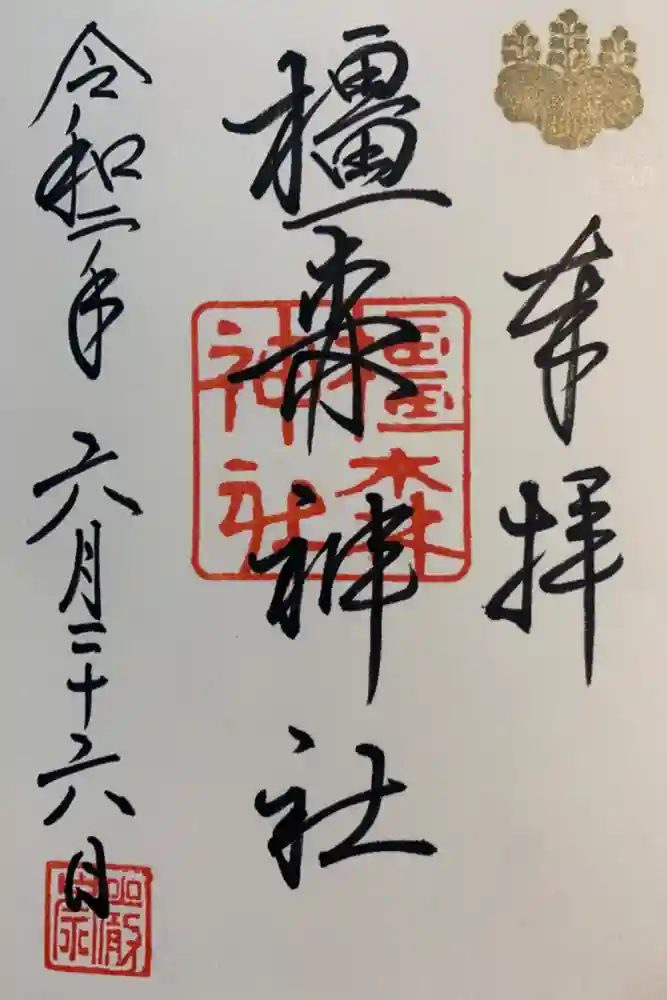 奉拝
橿森神社
橿森神社
令和二年六月二十六日